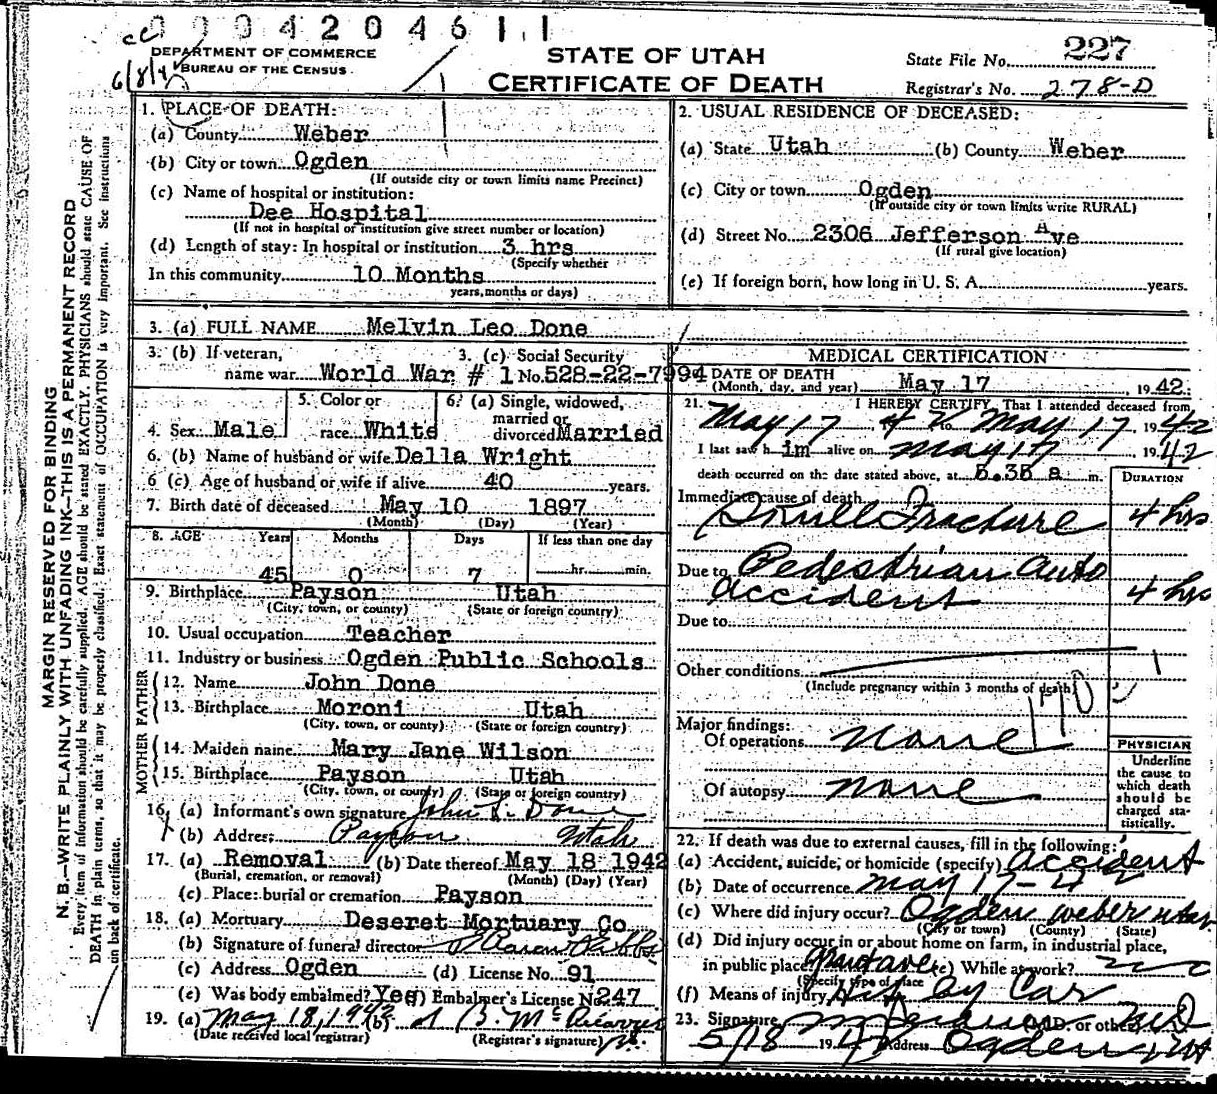 0004204611
cc
6/8/4
DEPARTMENT OF COMMERCE
BUREAU OF THE CENSUS
STATE OF UTAH
CERTIFICATE OF DEATH
State File No. 227
Registrar's No. 278-D
MARGIN RESERVED FOR BINDING
N. B.—WRITE PLAINLY WITH UNFADING INK—THIS IS A PERMANENT RECORD
Every item of information should be carefully supplied. AGE should be stated EXACTLY. PHYSICIANS should state CAUSE OF
DEATH in plain terms, so that it may be properly classified. Exact statement of OCCUPATION is very important. See instructions
on back of certificate.
1. PLACE OF DEATH:
(a) County Weber
(b) City or town Ogden
(If outside city or town limits name Precinct)
(c) Name of hospital or institution:
Dee Hospital
(If not in hospital or institution give street number or location)
(d) Length of stay: In hospital or institution 3 hrs
(Specify whether
In this community 10 Months
years, months or days)
2. USUAL RESIDENCE OF DECEASED:
(a) State Utah (b) County Weber
(c) City or town Ogden
(If outside city or town limits write RURAL)
(d) Street No. 2306 Jefferson Ave
(If rural give location)
(e) If foreign born, how long in U. S. A. years.
3. (a) FULL NAME Melvin Leo Done
3. (b) If veteran,
name war World War # 1
3. (c) Social Security
No. 528-22-7994
4. Sex Male
5. Color or
race White
6. (a) Single, widowed,
married or
divorced Married
6. (b) Name of husband or wife Della Wright
6 (c) Age of husband or wife if alive 40 years.
7. Birth date of deceased May 10 1897
(Month) (Day) (Year)
8. AGE Years Months Days If less than one day
45 0 7 hr. min.
9. Birthplace Payson Utah
(City, town, or county) (State or foreign country)
10. Usual occupation Teacher
11. Industry or business Ogden Public Schools
FATHER
12. Name John Done
13. Birthplace Moroni Utah
(City, town, or county) (State or foreign country)
MOTHER
14. Maiden name Mary Jane Wilson
15. Birthplace Payson Utah
(City, town, or county) (State or foreign country)
16. (a) Informant's own signature John L. Done
(b) Address Payson Utah
17. (a) Removal (b) Date thereof May 18 1942
(Burial, cremation, or removal) (Month) (Day) (Year)
(c) Place: burial or cremation Payson
18. (a) Mortuary Deseret Mortuary Co
(b) Signature of funeral director
(c) Address Ogden (d) License No. 91
(e) Was body embalmed? Yes (f) Embalmer's License No. 247
19. (a) May 18, 1942 (b)
(Date received local registrar) (Registrar's signature)
MEDICAL CERTIFICATION
DATE OF DEATH
(Month, day, and year) May 17 1942
21. I HEREBY CERTIFY, That I attended deceased from
May 17 42 to May 17, 1942
I last saw him alive on May 17 1942
death occurred on the date stated above, at 5.35 a m.
DURATION
Immediate cause of death
Skull Fracture 4 hrs
Due to Pedestrian auto
accident 4 hrs
Due to
Other conditions
(Include pregnancy within 3 months of death)
Major findings:
Of operations none
Of autopsy none
PHYSICIAN
Underline
the cause to
which death
should be
charged sta-
tistically.
22. If death was due to external causes, fill in the following:
(a) Accident, suicide, or homicide (specify) Accident
(b) Date of occurrence May 17-42
(c) Where did injury occur? Ogden Weber Utah
(City or town) (County) (State)
(d) Did injury occur in or about home on farm, in industrial place,
in public place? (e) While at work? no
(Specify type of place
(f) Means of injury Hit by Car
23. Signature (M.D. or other) MD
5/18 1942 Address Ogden Ut